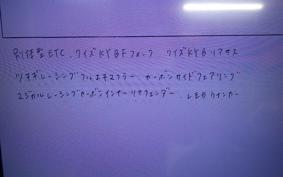 別体型ETC. ワイズKYBFフォーク ワイズKYBリアサス
ツキギレーシングフルエキマフラー カーボンサイドフェアリング
マジカルレーシングカーボンインナーリアフェンダー. LEDウインカー